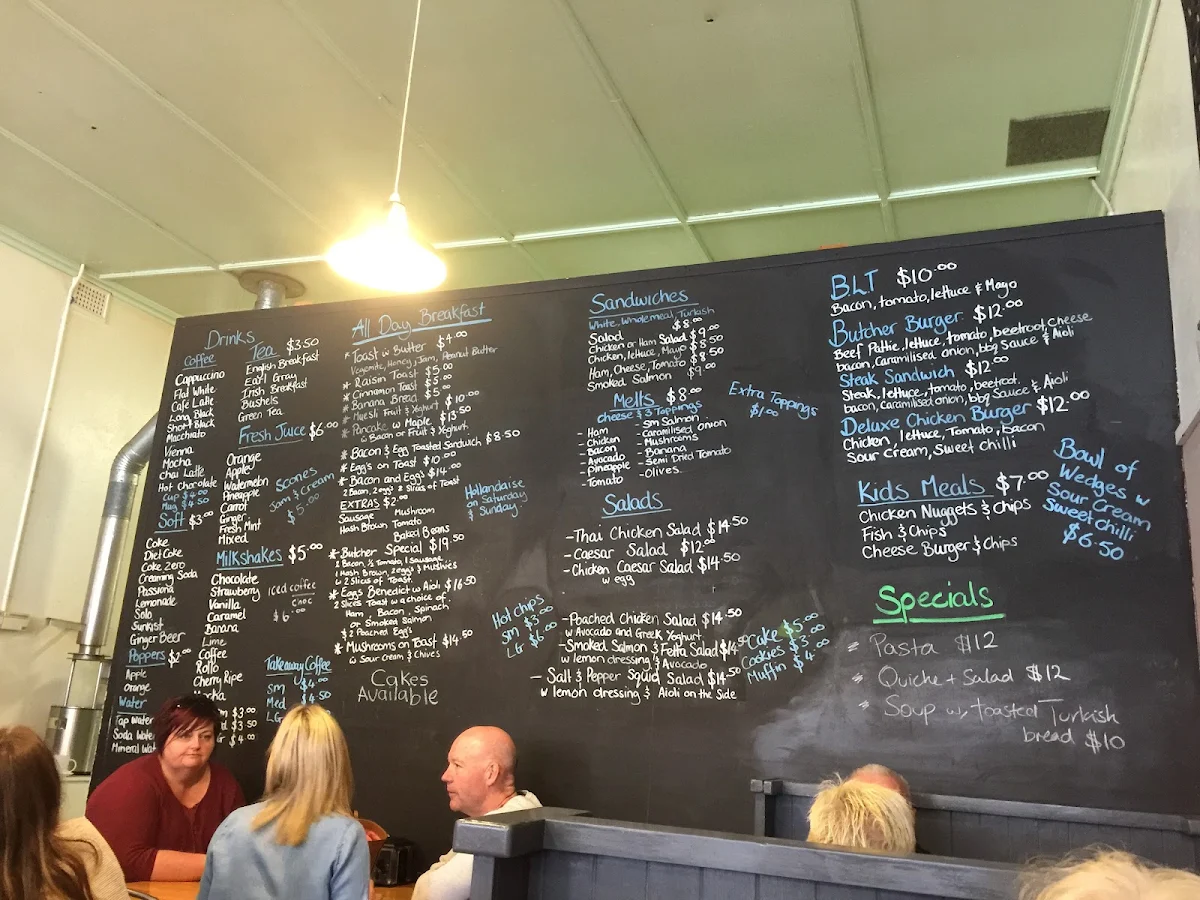 Drinks
Coffee
Cappuccino
Flat White
Café Latte
Long Black
Short Black
Macchiato
Vienna
Mocha
Chai Latte
Hot Chocolate
Cup $4.00
Mug $4.50
Soft $3.00
Coke
Diet Coke
Coke Zero
Creaming Soda
Passiona
Lemonade
Solo
Sunkist
Ginger Beer
Poppers $2.00
Apple
Orange
Water
Tap Water
Soda Wate
Mineral Wat
Tea $3.50
English Breakfast
Earl Gray
Irish Breakfast
Bushels
Green Tea
Fresh Juice $6.00
Orange
Apple
Watermelon
Pineapple
Carrot
Ginger
Fresh Mint
Mixed
Scones
Jam & Cream
$5.00
Milkshakes $5.00
Chocolate
Strawberry
Vanilla
Caramel
Banana
Lime
Coffee
Rollo
Cherry Ripe
Mocha
Iced coffee
choc
$6.00
Takeaway Coffee
Sm $4.00
Med $4.50
LG
$3.00
$3.50
$4.00
All Day Breakfast
* Toast w Butter $4.00
Vegemite, Honey, Jam, Peanut Butter
* Raisin Toast $5.00
* Cinnamon Toast $5.00
* Banana Bread $5.00
* Muesli Fruit & Yoghurt $10.00
* Pancake w Maple $13.50
w Bacon or Fruit & Yoghurt
* Bacon & Egg Toasted Sandwich $8.50
* Egg's on Toast $10.00
* Bacon and Egg's $14.00
2 Bacon, 2 egg's 2 Slices of Toast
EXTRAS $2.00
Sausage Mushroom
Hash Brown, Tomato
Baked Beans
* Butcher Special $19.50
2 Bacon, ½ Tomato, 1 Sausage,
1 Hash Brown, 2 egg's & Mushies
w 2 Slices of Toast.
* Eggs Benedict w Aioli $16.50
2 Slices Toast w a choice of
Ham, Bacon, Spinach
or Smoked Salmon
& 2 Poached Egg's
* Mushrooms on Toast $14.50
w Sour Cream & Chives
Cakes
Available
Hollandaise
on Saturday
& Sunday.
Hot Chips
Sm $3.00
LG $6.00
Sandwiches
White, Wholemeal, Turkish
Salad $8.00
Chicken or Ham Salad $9.00
Chicken, lettuce, Mayo $8.50
Ham, Cheese, Tomato $8.50
Smoked Salmon $9.00
Melts $8.00
cheese & 3 Toppings
- Ham
- Chicken
- Bacon
- Avocado
- Pineapple
- Tomato
- Sm Salmon
- Caramilised Onion
- Mushrooms
- Banana
- Semi Dried Tomato
- Olives.
Extra Toppings
$1.00
Salads
- Thai Chicken Salad $14.50
- Caesar Salad $12.00
- Chicken Caesar Salad $14.50
w egg
- Poached Chicken Salad $14.50
w Avocado and Greek Yoghurt
- Smoked Salmon & Fetta Salad $14.50
w lemon dressing & Avocado
- Salt & Pepper Squid Salad $14.50
w lemon dressing & Aioli on the Side
Cake $5.00
Cookies $3.00
Muffin $4.00
B.L.T $10.00
Bacon, tomato, lettuce & Mayo
Butcher Burger $12.00
Beef Pattie, lettuce, tomato, beetroot, cheese
bacon, Caramilised onion, bbq Sauce & Aioli
Steak Sandwich $12.00
Steak, lettuce, tomato, beetroot,
bacon, Caramilised onion, bbq Sauce & Aioli
Deluxe Chicken Burger $12.00
Chicken, lettuce, Tomato, bacon
Sour cream, Sweet chilli
Kids Meals $7.00
Chicken Nuggets & Chips
Fish & Chips
Cheese Burger & Chips
Bowl of
Wedges w
Sour Cream
Sweet chilli
$6.50
Specials
* Pasta $12
* Quiche + Salad $12
* Soup w, toasted Turkish
bread $10